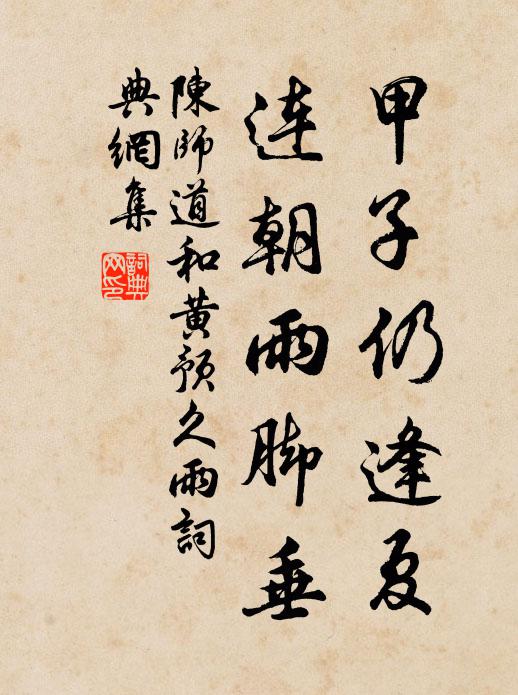 甲子仍逢夏
連朝雨脚垂
陳師道和黄預久雨詞
典網集
詞典网印